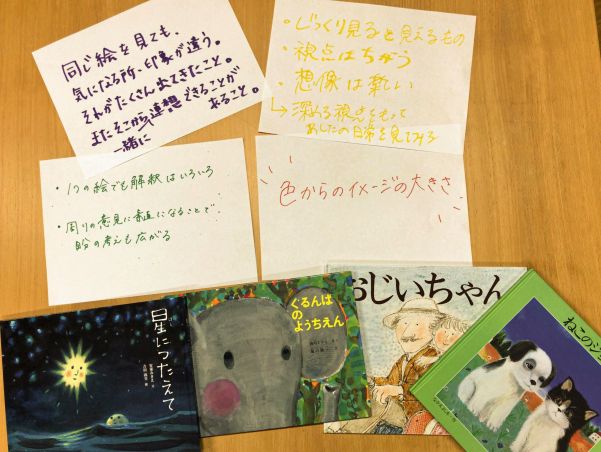 同じ絵を見ても、
気になる所、印象が違う。
それがたくさん出てきたこと。
またそこから連想できることが
一緒に
あること。
・じっくり見ると見えるもの
・視点はちがう
・想像は楽しい
↳深める視点をもって
あしたの日常を見てみる
・1つの絵でも解釈はいろいろ
・周りの意見に素直になることで
自分の考えも広がる
色からのイメージの大きさ
星につたえて
ぐるんぱ
の
ようちえん
おじいちゃん
ねこのシ